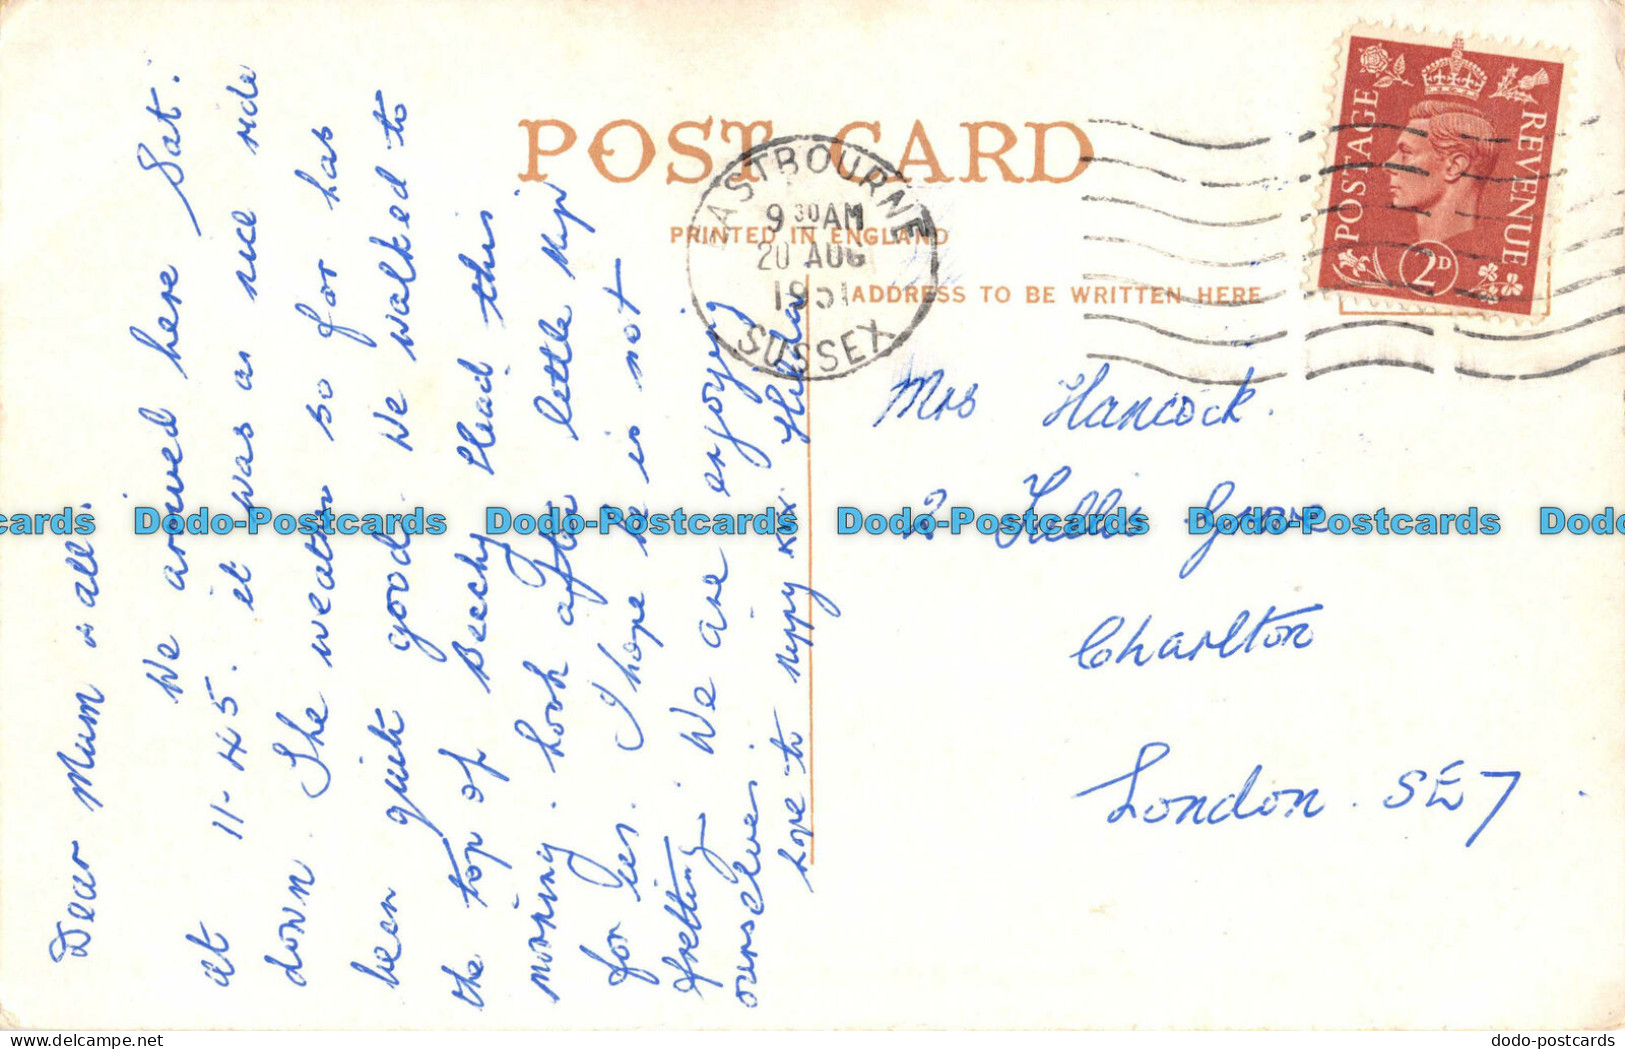 POST CARD
PRINTED IN ENGLAND
ADDRESS TO BE WRITTEN HERE
EASTBOURNE
9 30 AM
20 AUG
1951
SUSSEX
POSTAGE
REVENUE
2D
Dear Mum & all.
We arrived here Sat.
at 11-45. it was a nice ride
down. The weather so far has
been quite good. We walked to
the top of Beechy Head this
morning. Look after little Nip
for us. I hope he is not
fretting. We are enjoying
ourselves.
Love to Nippy xxx Hilda
Mrs Hancock.
Charlton
London. SE7
Dodo-Postcards Dodo-Postcards Dodo-Postcards Dodo-Postcards
dodo-postcards